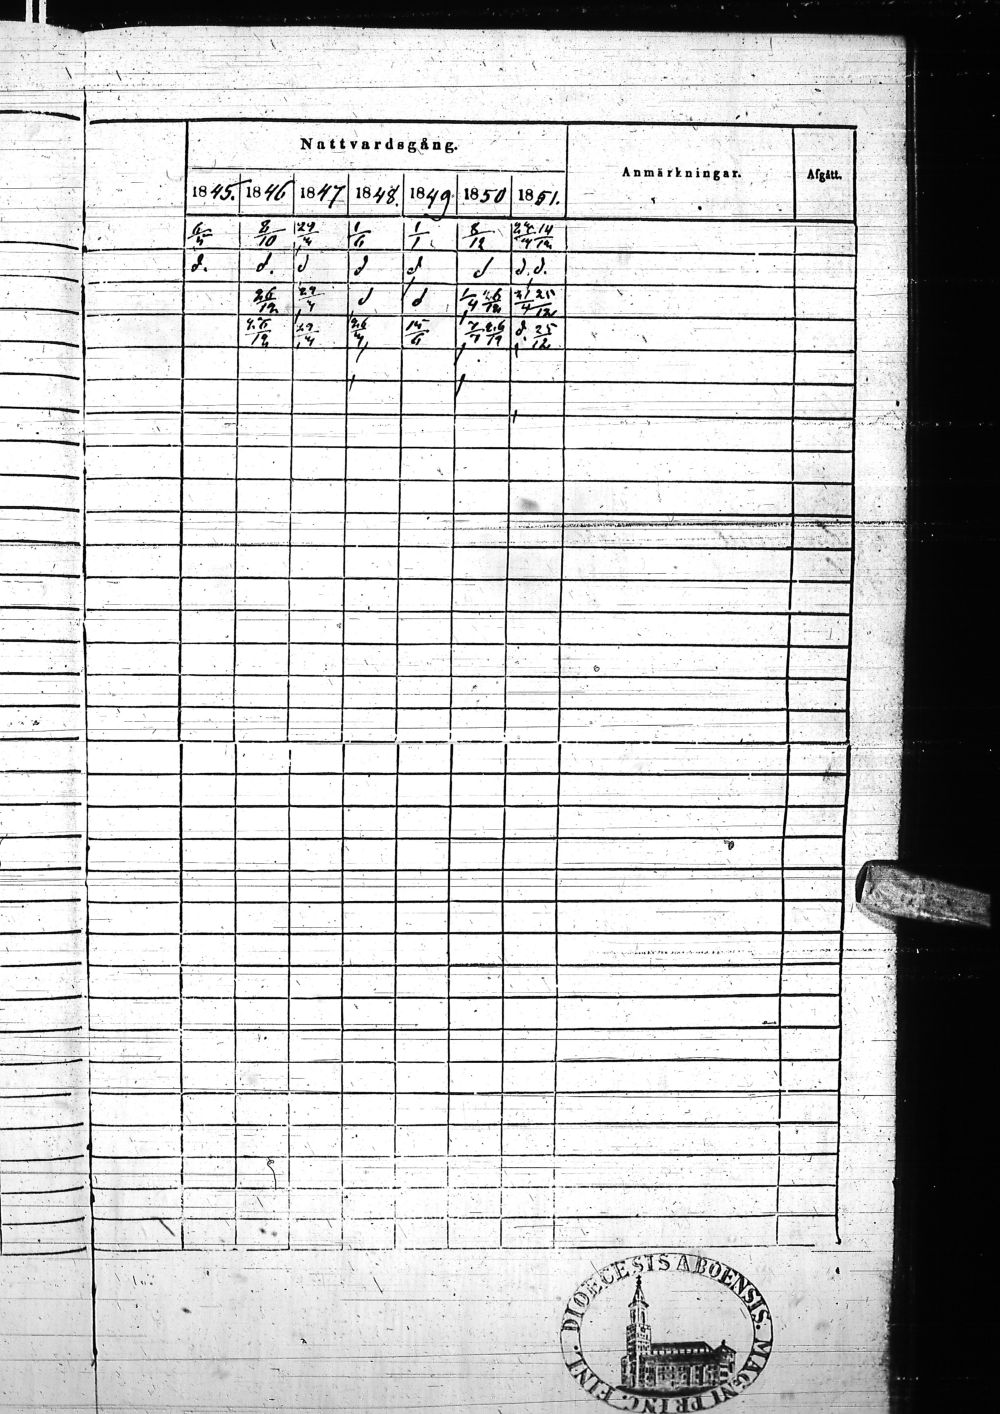 Nattvardsgång. Anmärkningar. Afgått.
1845. 1846 1847 1848. 1849. 1850 1851.
6/4 8/10 29/4 1/6 1/1 8/12 24/4 14/12
d. d. d d d d d. d.
26/12 29/4 d d 1/4 26/12 21/4 25/12
26/12 29/4 26/4 15/6 7/7 26/12 d. 25/12
DIOECESIS ABOENSIS. MAGNI PRINC. FINL.